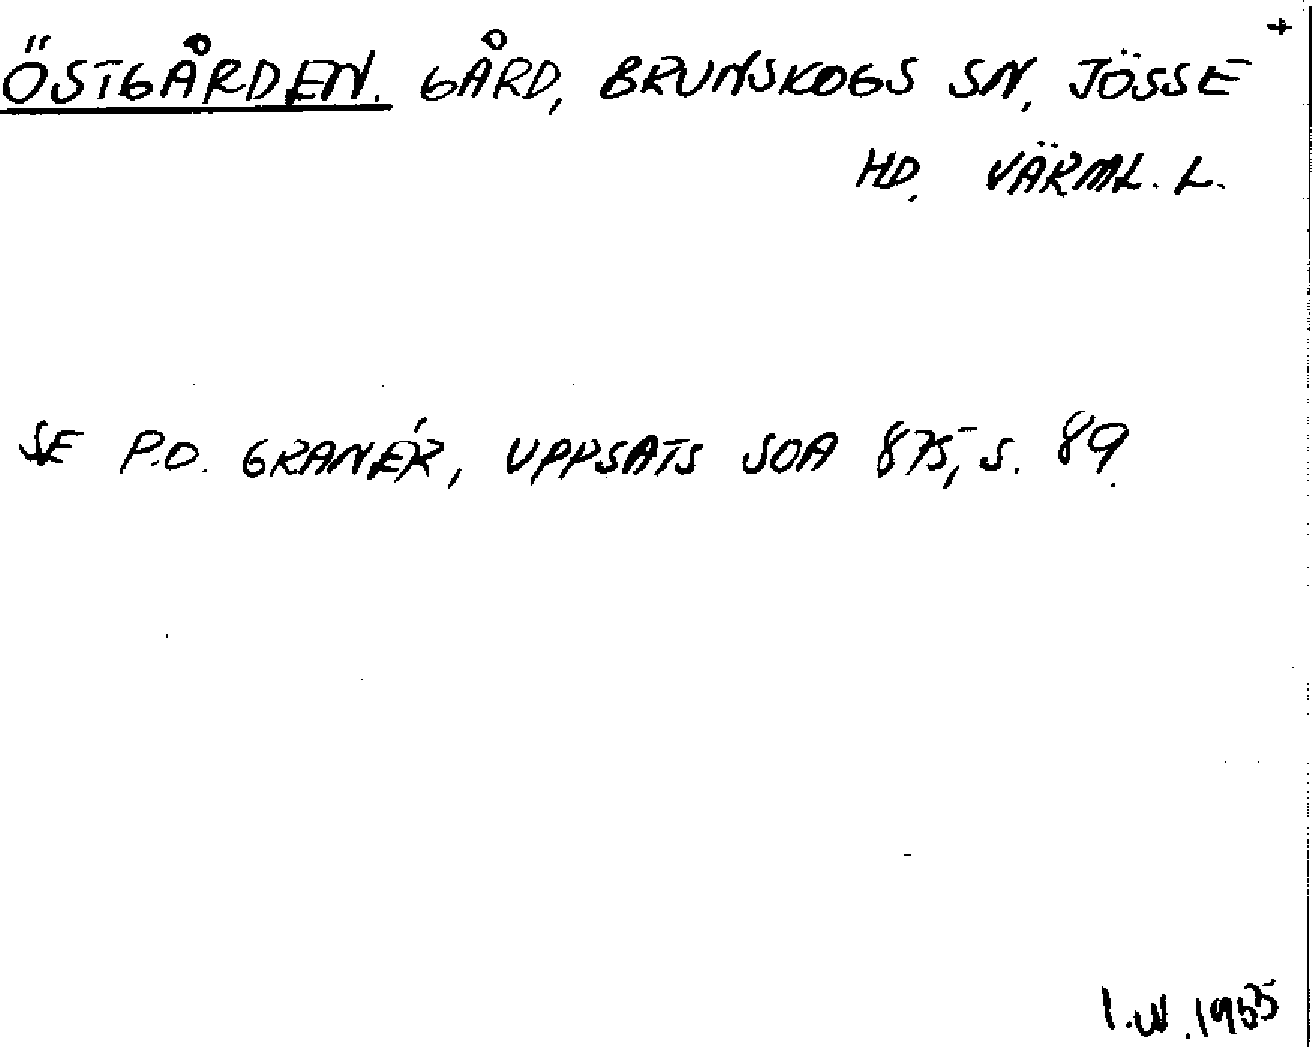 +
ÖSTGÅRDEN. GÅRD, BRUNSKOGS SN, JÖSSE
HD, VÄRML. L.
SE P.O. GRANÉR, UPPSATS SOA 875, S. 89.
I.W. 1955